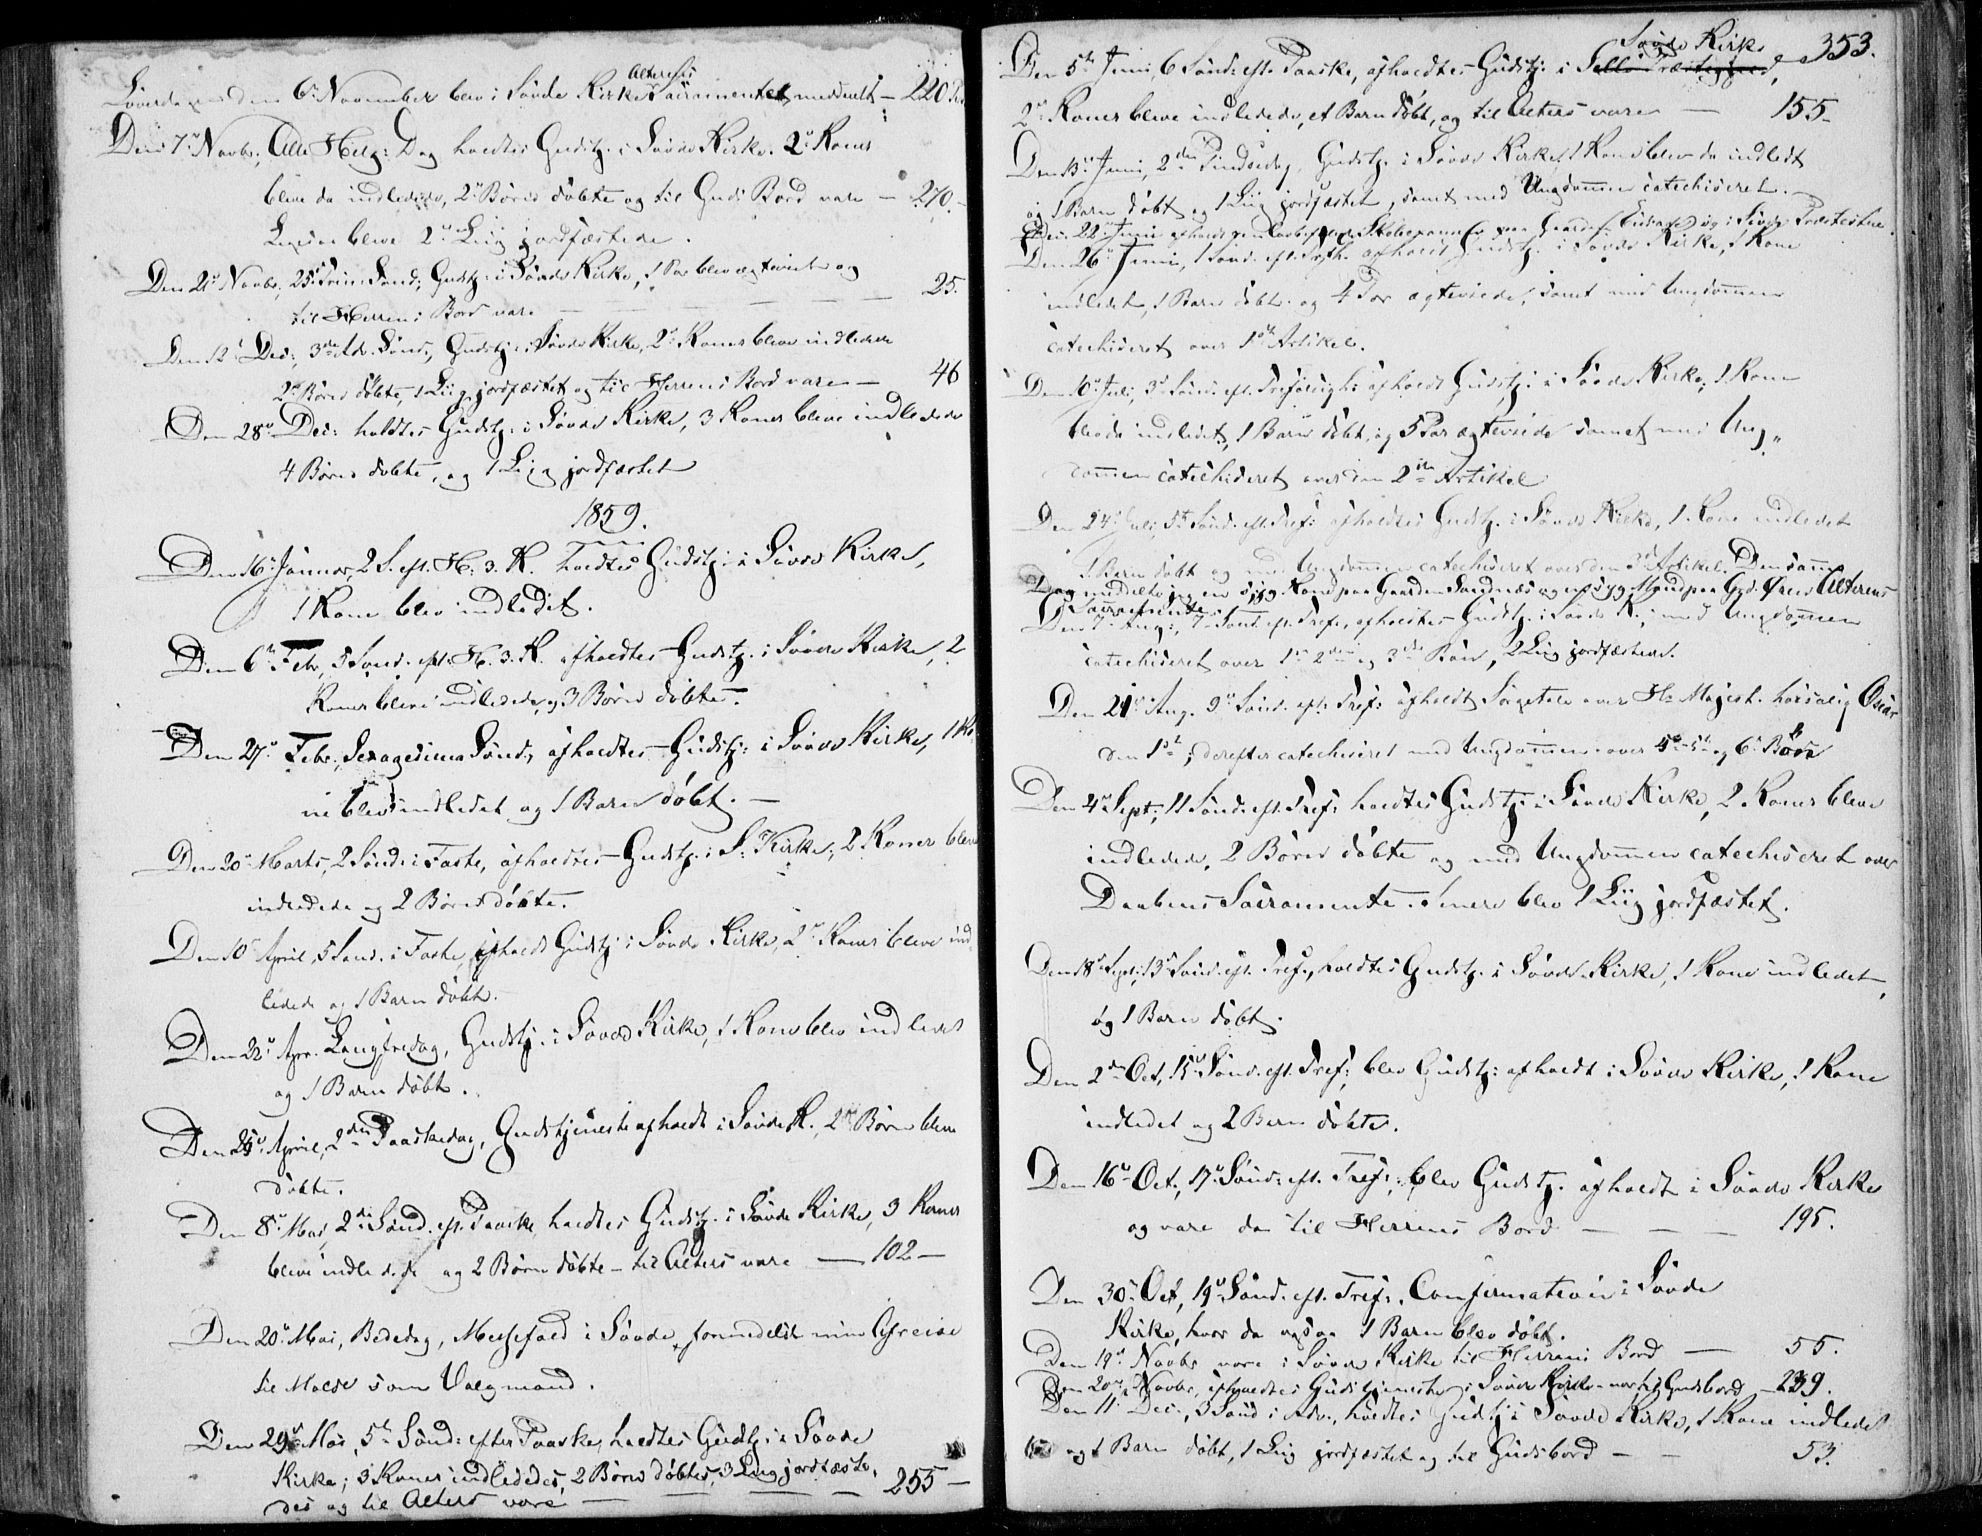 Løverdagen den 6te November blev i Søvde Kirke Alterets Sacramente meddeelt — 220
Den 7de Novbr., Alle Helg: Dag holdtes Gudstj. i Søvde Kirke. 2de Koner
bleve da indledede, 2de Børn døbte og til Guds Bord vare — 270.
bleve 2de Liig jordfæstede.
Den 21de Novbr., 25de Trin: Sønd., Gudstj. i Søvde Kirke, 1 Par blev ægteviet og
til Herrens Bord vare — — — 25.
Den 12te Dec:, 3die Adv. Sønd., Gudstj. i Søvde Kirke, 2de Koner bleve indledede
2de Børn døbte, 1 Liig jordfæstet og til Herrens Bord vare — 46
Den 28de Dec: holdtes Gudstj: i Søvde Kirke, 3 Koner bleve indledede
4 Børn døbte, og 1 Liig jordfæstet
1859.
Den 16de Januar, 2 S. eft. H. 3. K. holdtes Gudstj. i Søvde Kirke,
1 Kone blev indledet.
Den 6te Febr, 5 Sønd. eft. H. 3. K. afholdtes Gudstj. i Søvde Kirke, 2
Koner bleve indledede og 3 Børn døbte.
Den 27de Febr., Sexagesima Sønd., afholdtes Gudstj: i Søvde Kirke, 1 Ko-
ne blev indledet og 1 Barn døbt. —
Den 20de Marts, 2 Sønd: i Faste, afholdtes Gudstj. i S: Kirke; 2 Koner bleve
indledede og 2 Børn døbte.
Den 10de April, 5 Sønd. i Faste, afholdt Gudstj. i Søvde Kirke, 2de Koner bleve ind-
ledede og 1 Barn døbt.
Den 22de Apr. Langfredag, Gudstj. i Søvde Kirke, 1 Kone blev indledet
og 1 Barn døbt.
Den 25de April, 2den Paaskedag, Gudstjeneste afholdt i Søvde K., 2de Børn bleve
døbte.
Den 8de Mai, 2den Sønd. eft. Paaske, holdtes Gudstj. i Søvde Kirke, 3 Koner
bleve indledede og 2 Børn døbte – til Alters vare — 102 —
Den 20de Mai, Bededag, Messefald i Søvde, formedelst min Afreise
til Molde som Valgmand.
Den 29de Mai, 5te Sønd: efter Paaske, holdtes Gudstj. i Søvde
Kirke; 3 Koner indlededes, 2 Børn døbtes, 3 Liig jordfæste-
des og til Alters vare — — — 255 —
353.
Søvde Kirke
Den 5te Juni, 6 Sønd: eft. Paaske, afholdtes Gudstj. i
2de Koner bleve indledede, et Barn døbt, og til Alters vare — 155.
Den 13de Juni, 2den Pindsedag, Gudstj. i Søvde Kirke, 1 Kone blev da indledt
og 1 Barn døbt og 1 Liig jordfæstet, samt med Ungdommen catechiseret.
Den 22de Juni afholdt
Den 26de Juni, 1 Sønd. eft. Trefh. afholdt Gudstj. i Søvde Kirke, 1 Kone
indledet, 1 Barn døbt og 4 Par ægteviede, samt med Ungdommen
catechiseret over 1ste Artikel.
Den 10de Juli, 3de Sønd. eft. Trefoldigh: afholdt Gudstj. i Søvde Kirke, 1 Kone
blev da indledet, 1 Barn døbt, og 5 Par ægteviede samt med Ung-
dommen catechiseret over den 2den Artikel
Den 24de Juli, 5te Sønd. eft. Tref: afholdtes Gudstj. i Søvde Kirke, 1 Kone indledet
1 Barn døbt og med Ungdommen catechiseret over den 3die Artikel. Den samme
Dag meddeeltes en syg Kone paa Gaarden Sandnæs og en syg Mand paa Grd. Alterens
Sacramente.
Den 7de Aug:, 7 Sønd. eft. Tref., afholdtes Gudstj. i Søvde K., med Ungdommen
catechiseret over 1ste 2den og 3die Bøn, 2 Liig jordfæstede.
Den 21de Aug. 9de Sønd. eft: Tref: afholdt Sørgetale over Hs Majest. høisalig Oscar
den 1ste, derefter catechiseret med Ungdommen over 4de 5te og 6te Bøn
Den 4de Sept:, 11 Sønd. eft. Tref: holdtes Gudstj. i Søvde Kirke, 2 Koner bleve
indledede, 2 Børn døbte og med Ungdommen catechiseret over
Daabens Sacramente. Senere blev 1 Liig jordfæstet.
Den 18de Sept., 13de Sønd. eft. Tref., holdtes Gudstj. i Søvde Kirke, 1 Kone indledet
og 1 Barn døbt.
Den 2den Oct, 15de Sønd. eft. Tref:, blev Gudstj: afholdt i Søvde Kirke, 1 Kone
indledet og 2 Børn døbte.
Den 16de Oct., 17de Sønd: eft. Tref:, blev Gudstj. afholdt i Søvde Kirke
og vare da til Herrens Bord — — — 195.
Den 30de Oct, 19de Sønd. eft. Tref:, Confirmation i Søvde
Kirke, hvor da ogsaa 1 Barn blev døbt.
Den 19de Novbr vare i Søvde Kirke til Herrens Bord — 55.
Den 20de Novbr., afholdtes Gudstjeneste i Søvde Kirke – var til Guds bord – 239.
Den 11te Dec:, 3 Sønd i Adv., holdtes Gudstj i Søvde Kirke, 1 Kone indledet
og 1 Barn døbt, 1 Liig jordfæstet og til Gudsbord — — 53.